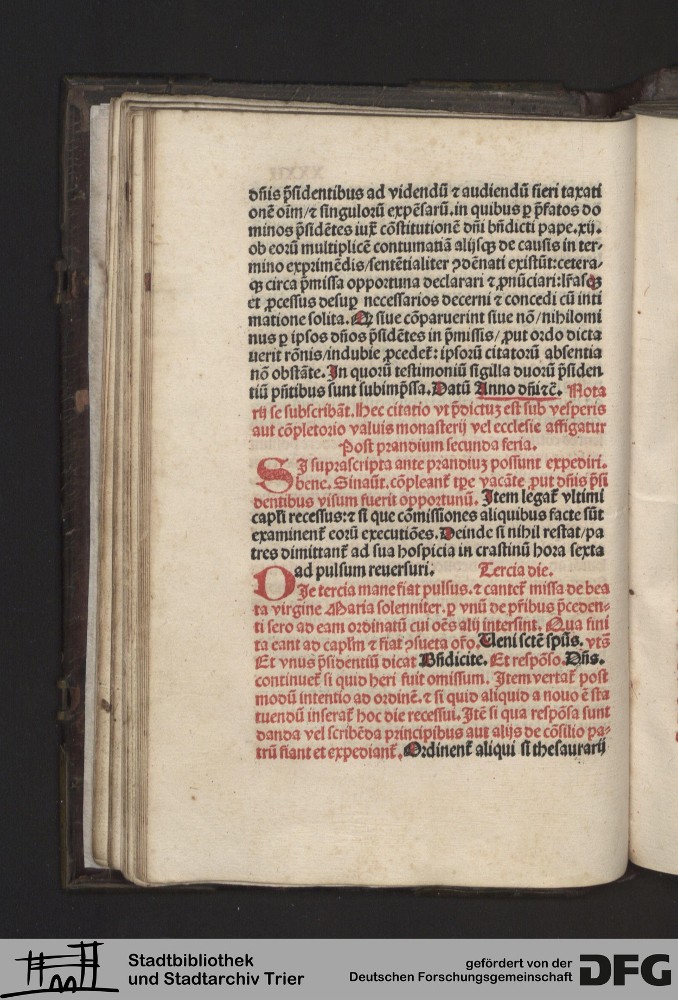 dñis p̃sidentibus ad videndũ ⁊ audiendũ fieri taxati
onẽ oĩm/⁊ singulorũ expẽsarũ.in quibus ꝑ p̃fatos do
minos p̃sidẽtes iux̃ cõstitutionẽ dñi bñdicti pape.xij.
ob eorũ multiplicẽ contumatiã alijsqꝫ de causis in ter⸗
mino exprimẽdis/sentẽtialiter ꝯdẽnati existũt:cetera⸗
qꝫ circa p̃missa opportuna declarari ⁊ ꝓnũciari:lr̃asqꝫ
et ꝓcessus desuꝑ necessarios decerni ⁊ concedi cũ inti
matione solita. Et siue cõparuerint siue nõ/nihilomi
nus ꝑ ipsos dños p̃sidẽtes in p̃missis/ꝓut ordo dicta
uerit rõnis/indubie ꝓcedet̃: ipsorũ citatorũ absentia
nõ obstãte. In quorũ testimoniũ sigilla duorũ p̃siden
tiũ pñtibus sunt subimp̃ssa. Datũ Anno dñi⁊c̃. Nota
rij se subscribãt. Hec citatio vt p̃dictuꝫ est sub vesperis
aut cõpletorio valuis monasterij vel ecclesie affigatur
Post prandium secunda feria.
SI suprascripta ante prandiuꝫ possunt expediri.
bene. Sinaũt. cõpleant̃ tꝑe vacãte ꝓut dñis p̃si
dentibus visum fuerit opportunũ. Item legat̃ vltimi
capl̃i recessus:⁊ si que cõmissiones aliquibus facte sũt
examinent̃ eorũ executiões. Deinde si nihil restat/pa
tres dimittant̃ ad sua hospicia in crastinũ hora sexta
ad pulsum reuersuri. Tercia die.
DIe tercia mane fiat pulsus. ⁊ cantet̃ missa de bea
ta virgine Maria solenniter. ꝑ vnũ de pr̃ibus p̃ceden⸗
ti sero ad eam ordinatũ cui oẽs alij intersint. Qua fini
ta eant ad capl̃m ⁊ fiat ꝯsueta or̃o. Ueni sctẽ spũs. vts̃
Et vnus p̃sidentiũ dicat Bñdicite. Et respõso. Dñs.
continuet̃ si quid heri fuit omissum. Item vertat̃ post
modũ intentio ad ordinẽ. ⁊ si quid aliquid a nouo ẽ sta
tuendũ inserat̃ hoc die recessui. Itẽ si qua respõsa sunt
danda vel scribẽda principibus aut alijs de cõsilio pa⸗
trũ fiant et expediant̃. Ordinent̃ aliqui si thesaurarij
Stadtbibliothek
und Stadtarchiv Trier
gefördert von der
Deutschen Forschungsgemeinschaft
DFG